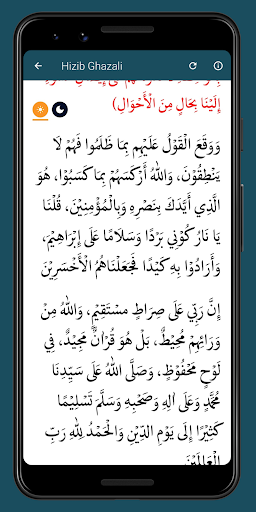 Hizib Ghazali
إِلَيْنَا بِحَالٍ مِنَ الْأَحْوَالِ)
وَوَقَعَ الْقَوْلُ عَلَيْهِم بِمَا ظَلَمُوا فَهُمْ لَا
يَنطِقُونَ، وَاللهُ أَرْكَسَهُمْ بِمَا كَسَبُوا، هُوَ
الَّذِي أَيَّدَكَ بِنَصْرِهِ وَبِالْمُؤْمِنِيْنَ، قُلْنَا
يَا نَارُ كُوْنِي بَرْدًا وَسَلَامًا عَلَى إِبْرَاهِيْمَ،
وَأَرَادُوْا بِهِ كَيْدًا فَجَعَلْنَاهُمُ الْأَخْسَرِيْنَ
إِنَّ رَبِّي عَلَى صِرَاطٍ مسْتَقِيْمٍ، وَاللهُ مِنْ
وَرَائِهِمْ مُحِيْطٌ، بَلْ هُوَ قُرْاٰنٌ مَجِيْدٌ، فِي
لَوْحٍ مَحْفُوْظٍ، وَصَلَّى اللهُ عَلَى سَيِّدِنَا
مُحَمَّدٍ وَعَلَى اٰلِهِ وَصَحْبِهِ وَسَلَّمَ تَسْلِيْمًا
كَثِيْرًا إِلَى يَوْمِ الدِّيْنِ وَالْحَمْدُ لِلهِ رَبِّ
الْعَالَمِيْنَ